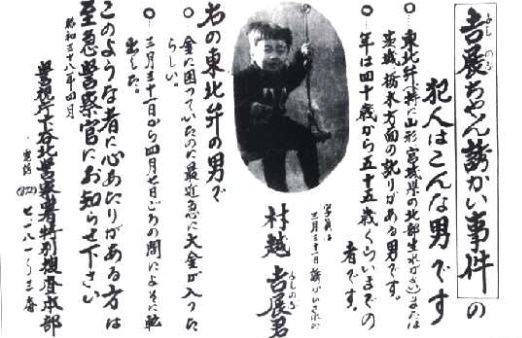 吉展ちゃん誘かい事件の
よしのぶ
犯人はこんな男です
東北弁(特に山形 宮城県の北部生れが
茨城 栃木方面の訛りがある男です。
年は四十歳から五十五歳くらいまでの
者です。
三月三十一日
村越 吉展君
よしのぶ
右の東北弁の男で
金に困っていたのに最近急に大金が入った
らしい。
三月三十一日から四月七日ごろの間によそに転
出した。
このような者に心あたりがある方は
至急警察官にお知らせ下さい
昭和三十八年四月
警視庁下谷北警察署特別捜査本部
電話